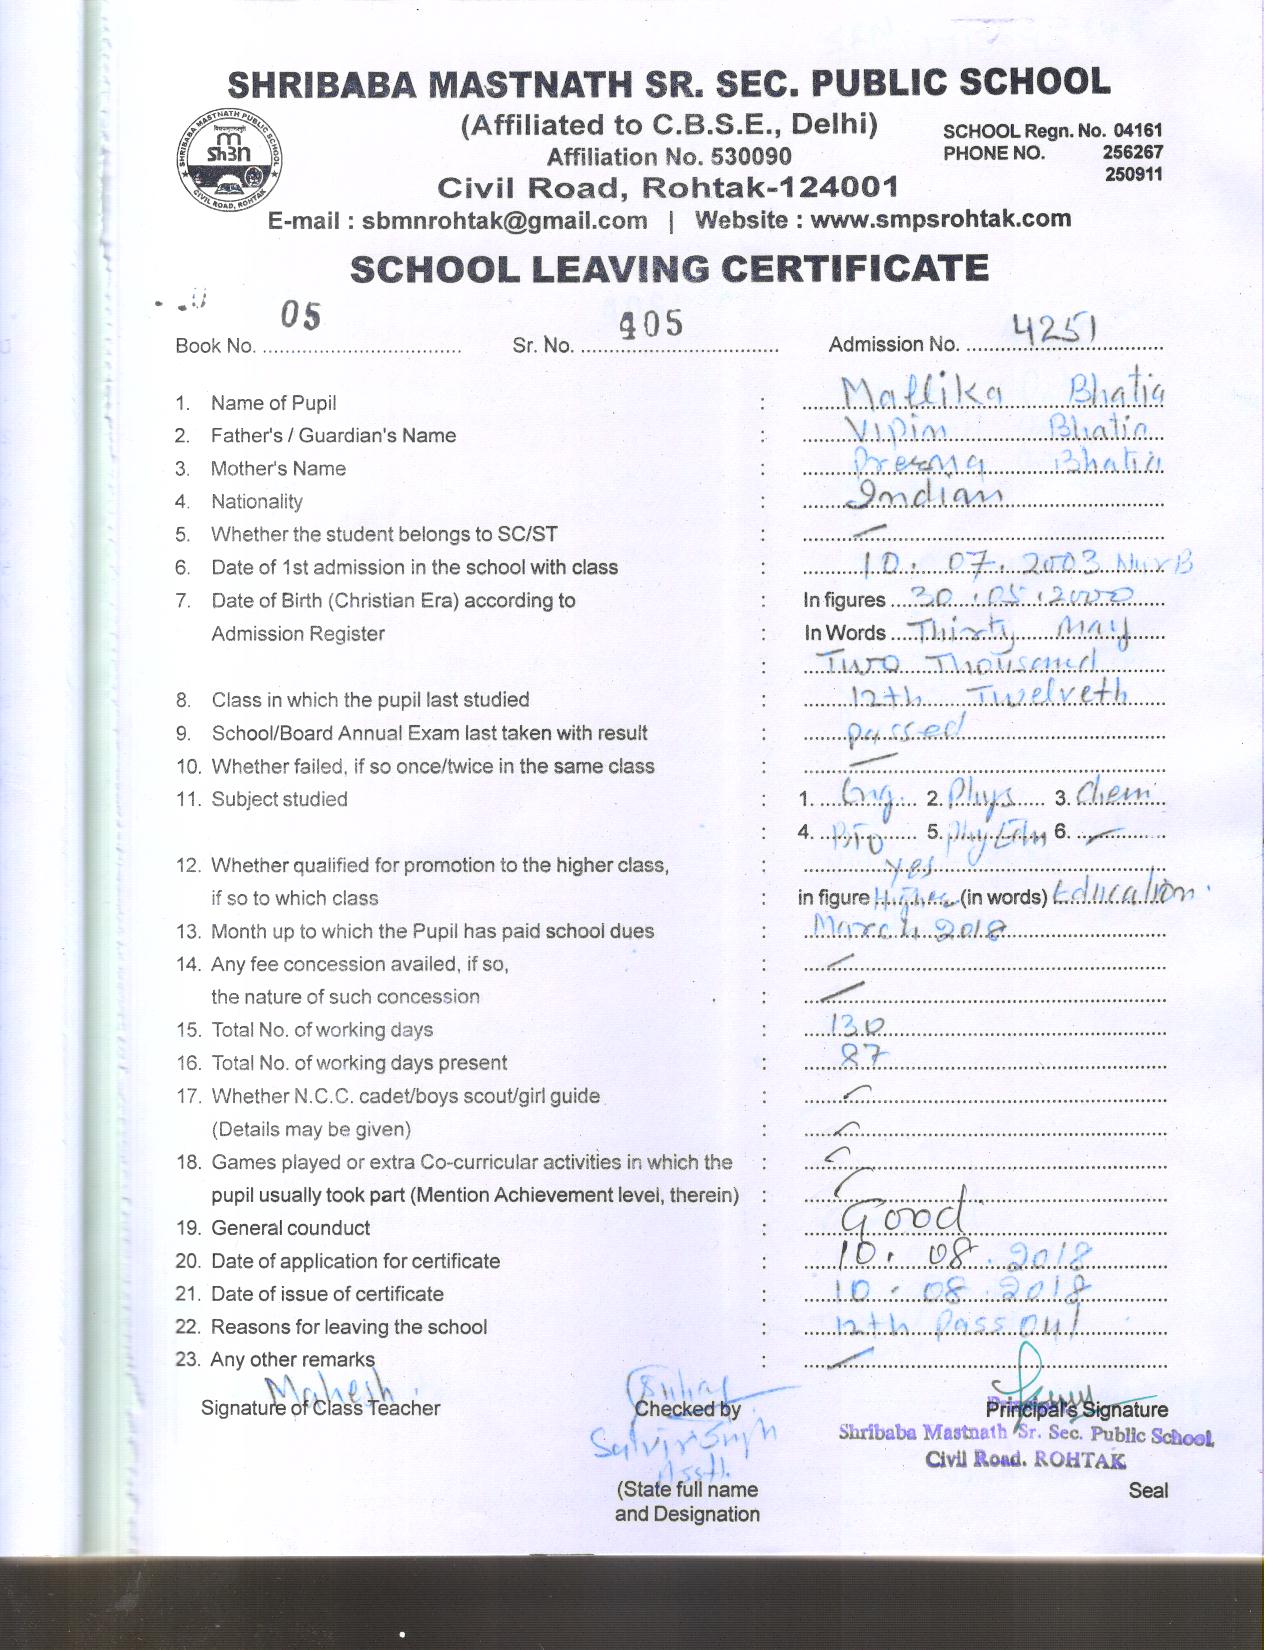 SHRIBABA MASTNATH SR. SEC. PUBLIC SCHOOL
SHRIBABA MASTNATH PUBLIC SCHOOL
CIVIL ROAD, ROHTAK
(Affiliated to C.B.S.E., Delhi)
Affiliation No. 530090
SCHOOL Regn. No. 04161
PHONE NO. 256267
250911
Civil Road, Rohtak-124001
E-mail : sbmnrohtak@gmail.com | Website : www.smpsrohtak.com
SCHOOL LEAVING CERTIFICATE
Book No. 05 Sr. No. 405 Admission No. 4251
1. Name of Pupil : Mallika Bhatia
2. Father's / Guardian's Name : Vipin Bhatia
3. Mother's Name : Prerna Bhatia
4. Nationality : Indian
5. Whether the student belongs to SC/ST : —
6. Date of 1st admission in the school with class : 10. 07. 2003 Nur B
7. Date of Birth (Christian Era) according to : In figures 30.05.2000
Admission Register : In Words Thirty May
: Two Thousand
8. Class in which the pupil last studied : 12th Twelveth
9. School/Board Annual Exam last taken with result : passed
10. Whether failed, if so once/twice in the same class : —
11. Subject studied : 1. Eng. 2. Phys 3. Chem
: 4. BIO 5. Phy Edn 6. —
12. Whether qualified for promotion to the higher class, : yes
if so to which class : in figure Higher (in words) Education.
13. Month up to which the Pupil has paid school dues : March 2018
14. Any fee concession availed, if so, : —
the nature of such concession : —
15. Total No. of working days : 130
16. Total No. of working days present : 87
17. Whether N.C.C. cadet/boys scout/girl guide :
(Details may be given) :
18. Games played or extra Co-curricular activities in which the :
pupil usually took part (Mention Achievement level, therein) :
19. General counduct : Good
20. Date of application for certificate : 10. 08. 2018
21. Date of issue of certificate : 10. 08. 2018
22. Reasons for leaving the school : 12th Pass out
23. Any other remarks : —
Mahesh
Signature of Class Teacher Checked by Principal's Signature
Satvir Singh
Asstt.
Shribaba Mastnath Sr. Sec. Public School
Civil Road. ROHTAK
(State full name Seal
and Designation